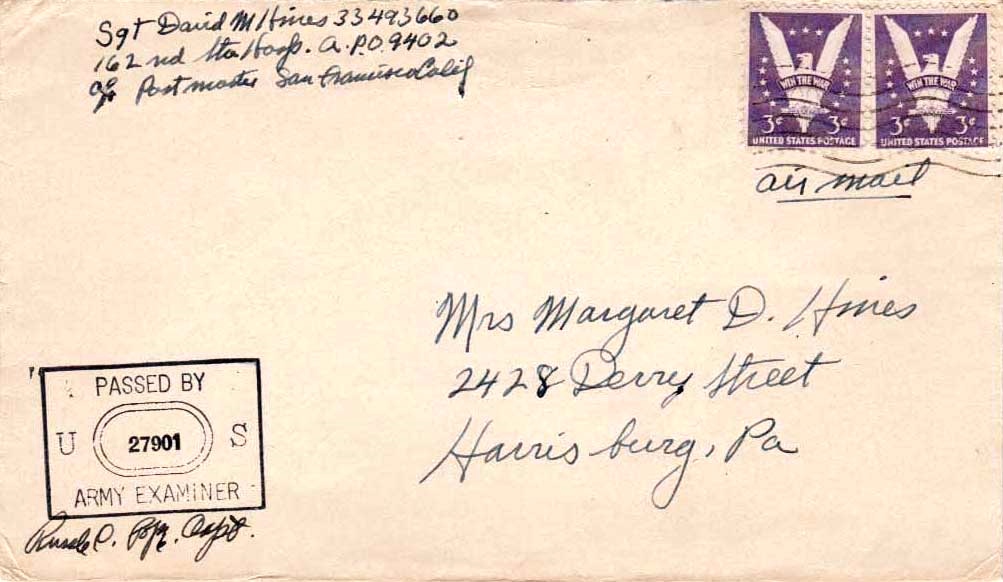 Sgt David M Hines 33493660
162 nd Sta Hosp. A.P.O. 9402
c/o Postmaster San Francisco Calif
WIN THE WAR WIN THE WAR
3¢ 3¢ 3¢ 3¢
UNITED STATES POSTAGE UNITED STATES POSTAGE
air mail
Mrs Margaret D. Hines
2428 Derry Street
Harrisburg, Pa
PASSED BY
U 27901 S
ARMY EXAMINER
C. Capt.